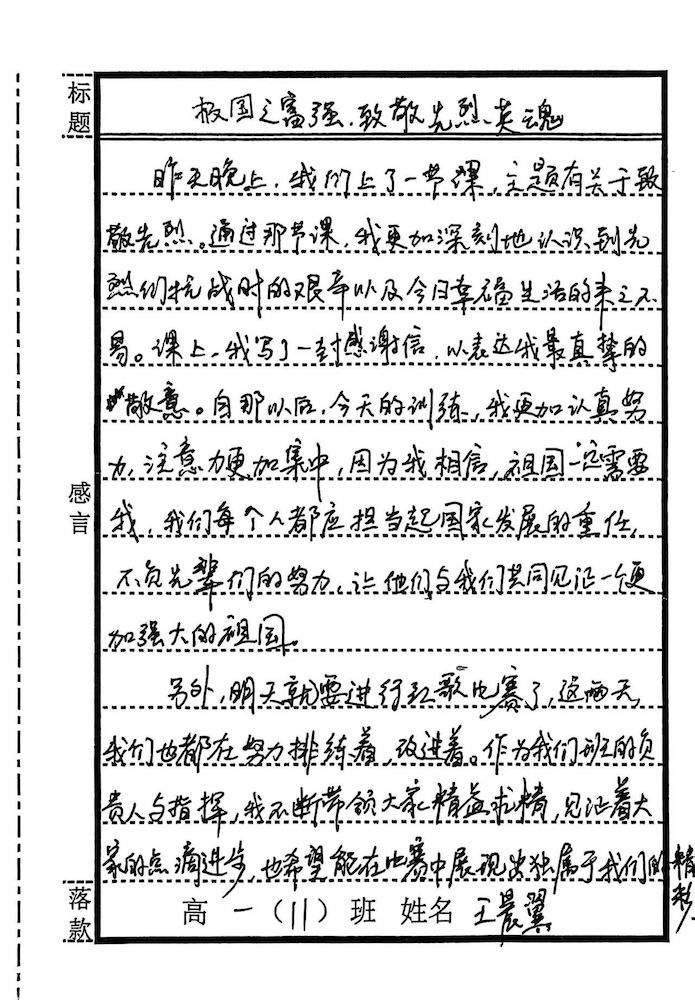 标题
报国之富强,致敬先烈英魂
昨天晚上,我们上了一节课,主题有关于致
敬先烈。通过那节课,我更加深刻地认识到先
烈们抗战时的艰辛以及今日幸福生活的来之不
易。课上,我写了一封感谢信,以表达我最真挚的
敬意。自那以后,今天的训练,我更加认真努
力,注意力更加集中,因为我相信,祖国一定需要
我,我们每个人都应担当起国家发展的重任,
不负先辈们的努力,让他们与我们共同见证一个更
加强大的祖国。
另外,明天就要进行红歌比赛了,这两天,
我们也都在努力排练着,改进着。作为我们班的负
责人与指挥,我不断带领大家精益求精,见证着大
家的点滴进步,也希望能在比赛中展现出独属于我们的精
彩
感言
落款
高一(11)班 姓名 王晨翼